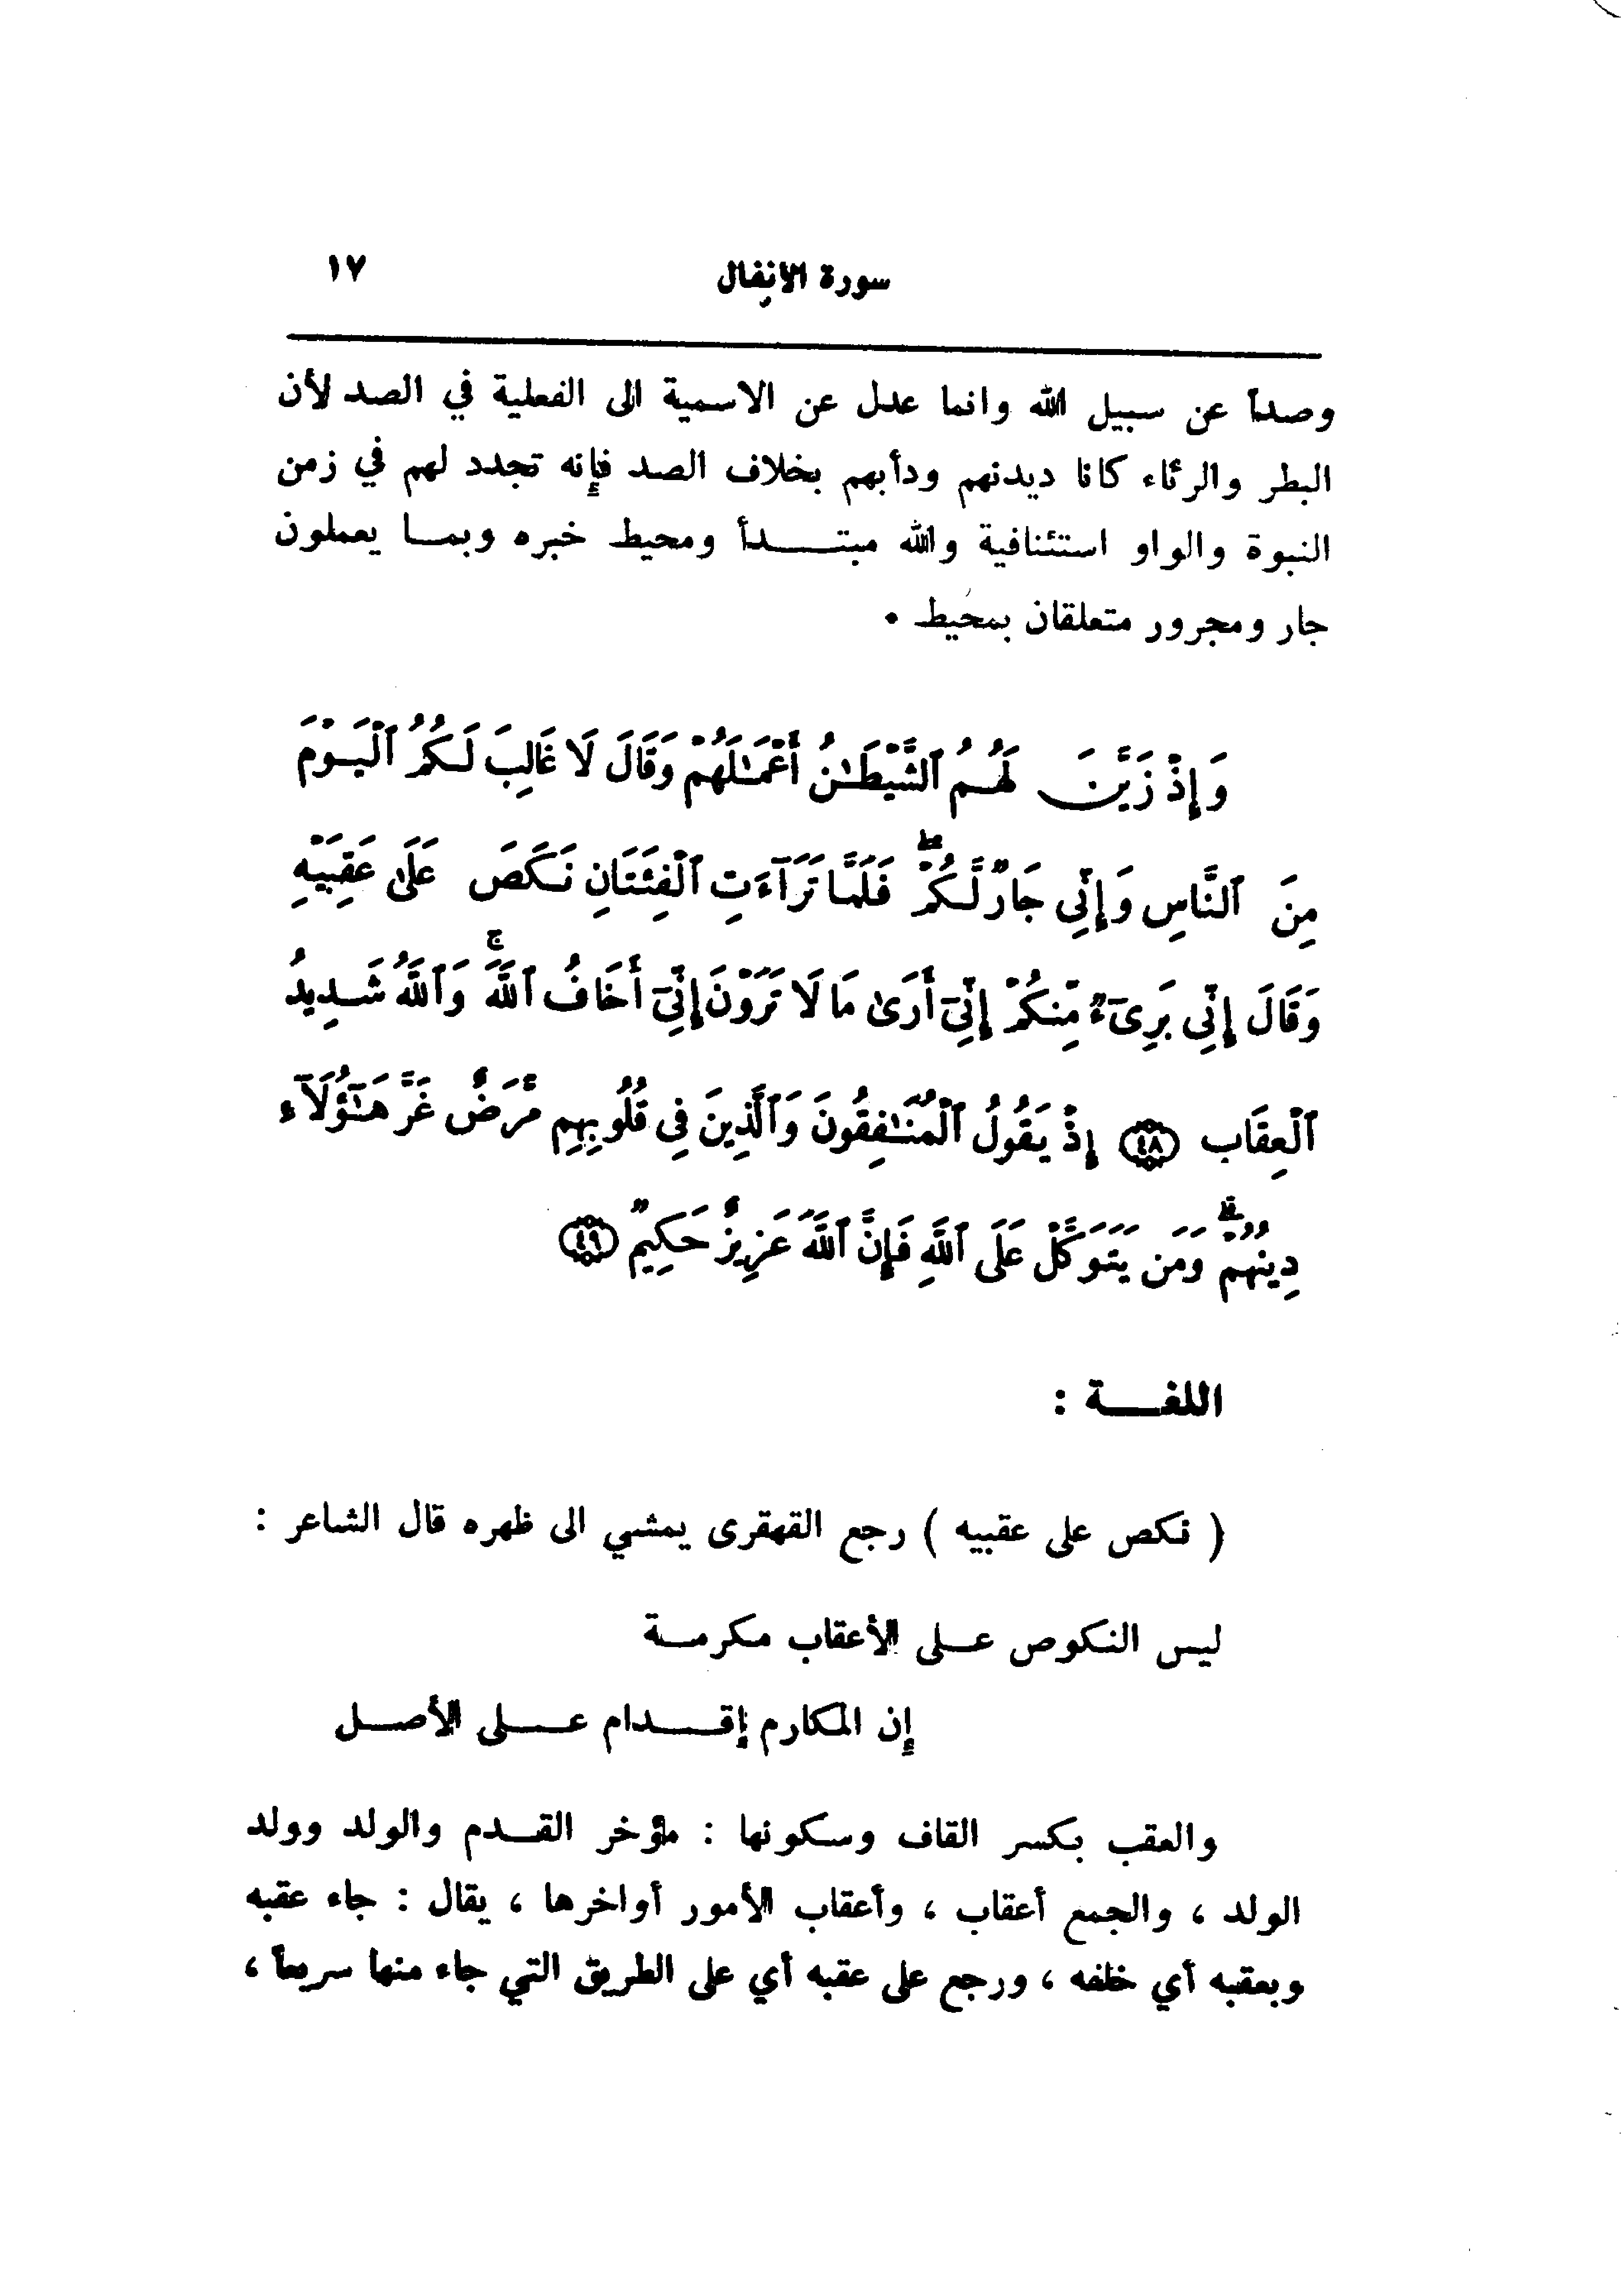 سورة الانفال ١٧
وصداً عن سبيل الله وانما عدل عن الاسمية الى الفعلية في الصد لأن
البطر والرئاء كانا ديدنهم ودأبهم بخلاف الصد فإنه تجدد لهم في زمن
النبوة والواو استئنافية والله مبتدأ ومحيط خبره وبما يعملون
جار ومجرور متعلقان بمحيط •
وَإِذْ زَيَّنَ لَهُمُ ٱلشَّيْطَـٰنُ أَعْمَـٰلَهُمْ وَقَالَ لَا غَالِبَ لَكُمُ ٱلْيَوْمَ
مِنَ ٱلنَّاسِ وَإِنِّى جَارٌ لَّكُمْ ۖ فَلَمَّا تَرَآءَتِ ٱلْفِئَتَانِ نَكَصَ عَلَىٰ عَقِبَيْهِ
وَقَالَ إِنِّى بَرِىٓءٌ مِّنكُمْ إِنِّىٓ أَرَىٰ مَا لَا تَرَوْنَ إِنِّىٓ أَخَافُ ٱللَّهَ ۚ وَٱللَّهُ شَدِيدُ
ٱلْعِقَابِ ٤٨ إِذْ يَقُولُ ٱلْمُنَـٰفِقُونَ وَٱلَّذِينَ فِى قُلُوبِهِم مَّرَضٌ غَرَّ هَـٰٓؤُلَآءِ
دِينُهُمْ ۗ وَمَن يَتَوَكَّلْ عَلَى ٱللَّهِ فَإِنَّ ٱللَّهَ عَزِيزٌ حَكِيمٌ ٤٩
اللغـــة :
( نكص على عقبيه ) رجع القهقرى يمشي الى ظهره قال الشاعر :
ليس النكوص على الأعقاب مكرمة
إن المكارم إقدام على الأصل
والعقب بكسر القاف وسكونها : مؤخر القدم والولد وولد
الولد ، والجمع أعقاب ، وأعقاب الأمور أواخرها ، يقال : جاء عقبه
وبعقبه أي خلفه ، ورجع على عقبه أي على الطريق التي جاء منها سريعاً ،